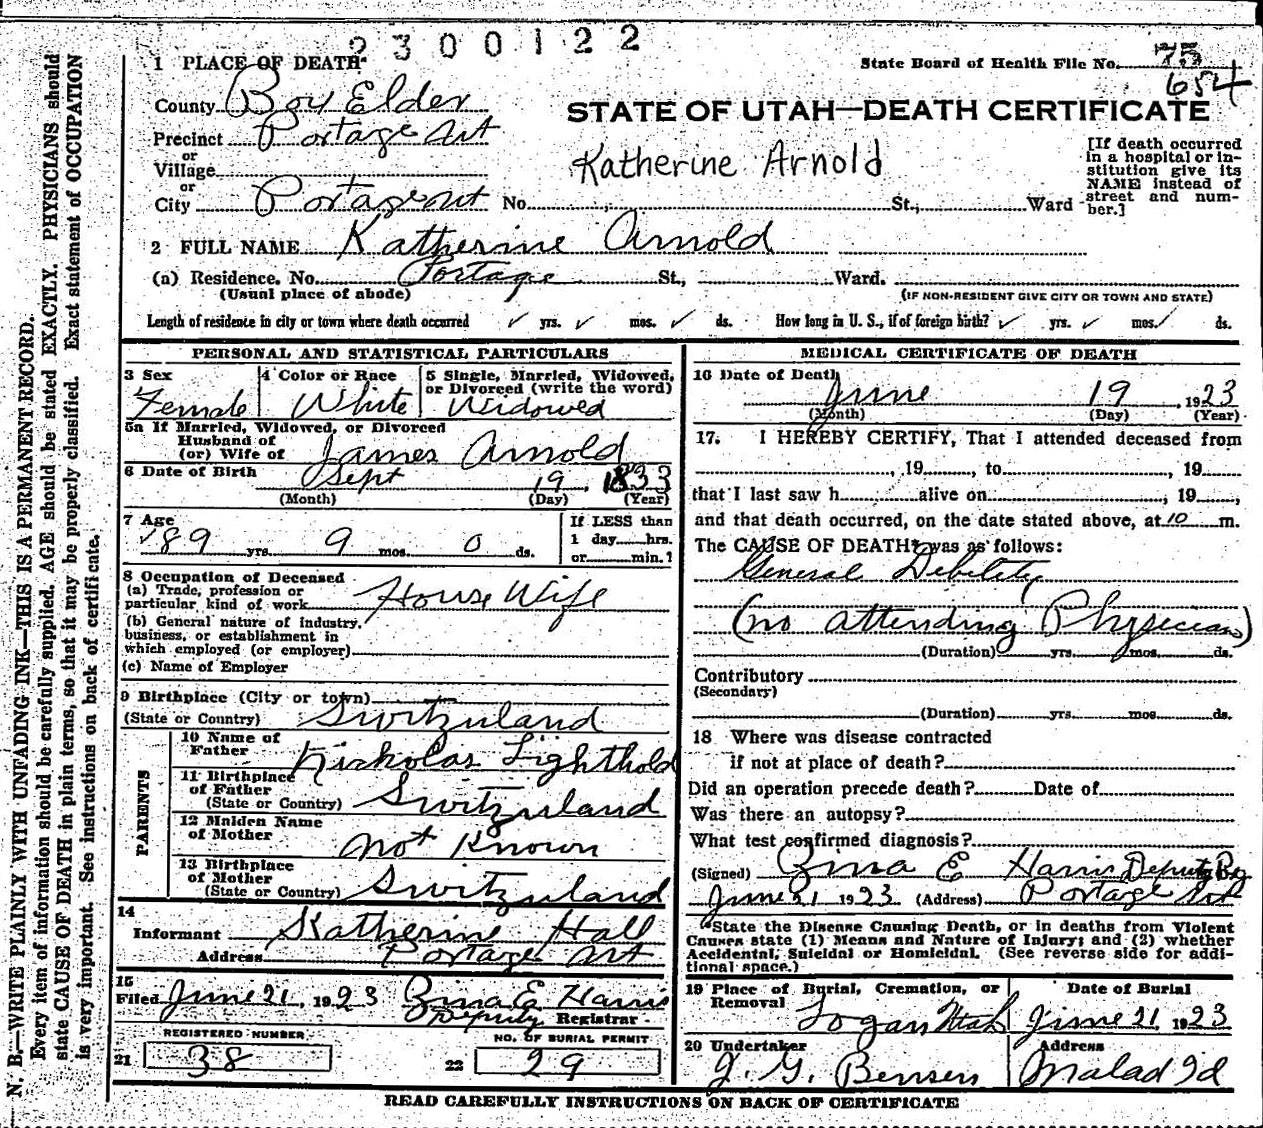 2300122
1 PLACE OF DEATH
State Board of Health File No. 75
654
County Box Elder
STATE OF UTAH—DEATH CERTIFICATE
Precinct Portage Ut
or
Village
or
City Portage Ut No. St., Ward
Katherine Arnold
[If death occurred
in a hospital or in-
stitution give its
NAME instead of
street and num-
ber.]
2 FULL NAME Katherine Arnold
(a) Residence. No. Portage St., Ward.
(Usual place of abode)
(IF NON-RESIDENT GIVE CITY OR TOWN AND STATE)
Length of residence in city or town where death occurred ✓ yrs. ✓ mos. ✓ ds. How long in U. S., if of foreign birth? ✓ yrs. ✓ mos. ✓ ds.
PERSONAL AND STATISTICAL PARTICULARS
3 Sex
Female
4 Color or Race
White
5 Single, Married, Widowed,
or Divorced (write the word)
Widowed
5a If Married, Widowed, or Divorced
Husband of
(or) Wife of James Arnold
6 Date of Birth Sept 19, 1833
(Month) (Day) (Year)
7 Age
89 yrs. 9 mos. 0 ds.
If LESS than
1 day hrs.
or min.?
8 Occupation of Deceased
(a) Trade, profession or
particular, kind of work House Wife
(b) General nature of industry,
business, or establishment in
which employed (or employer)
(c) Name of Employer
9 Birthplace (City or town)
(State or Country) Switzuland
PARENTS
10 Name of
Father Nickolas Lighthold
11 Birthplace
of Father
(State or Country) Switzuland
12 Maiden Name
of Mother not Known
13 Birthplace
of Mother
(State or Country) Switzuland
14
Informant Katherine Hall
Address Portage Ut
15
Filed June 21, 1923 Zina E Harris
Deputy Registrar
REGISTERED NUMBER
21 38
NO. OF BURIAL PERMIT
22 29
MEDICAL CERTIFICATE OF DEATH
16 Date of Death June 19, 1923
(Month) (Day) (Year)
17. I HEREBY CERTIFY, That I attended deceased from
, 19 , to , 19
that I last saw h alive on , 19 ,
and that death occurred, on the date stated above, at 10 m.
The CAUSE OF DEATH* was as follows:
General Debility
(no attending Physician)
(Duration) yrs. mos. ds.
Contributory
(Secondary)
(Duration) yrs. mos. ds.
18 Where was disease contracted
if not at place of death?
Did an operation precede death? Date of
Was there an autopsy?
What test confirmed diagnosis?
(Signed) Zina E Harris Deputy Reg
June 21 1923 (Address) Portage Ut
*State the Disease Causing Death, or in deaths from Violent
Causes state (1) Means and Nature of Injury; and (2) whether
Accidental, Suicidal or Homicidal. (See reverse side for addi-
tional space.)
19 Place of Burial, Cremation, or
Removal
Logan Utah
Date of Burial
June 21, 1923
20 Undertaker
J. G. Bensen
Address
Malad Id
READ CAREFULLY INSTRUCTIONS ON BACK OF CERTIFICATE
N. B.—WRITE PLAINLY WITH UNFADING INK—THIS IS A PERMANENT RECORD.
Every item of information should be carefully supplied. AGE should be stated EXACTLY. PHYSICIANS should
state CAUSE OF DEATH in plain terms, so that it may be properly classified. Exact statement of OCCUPATION
is very important. See instructions on back of certificate.